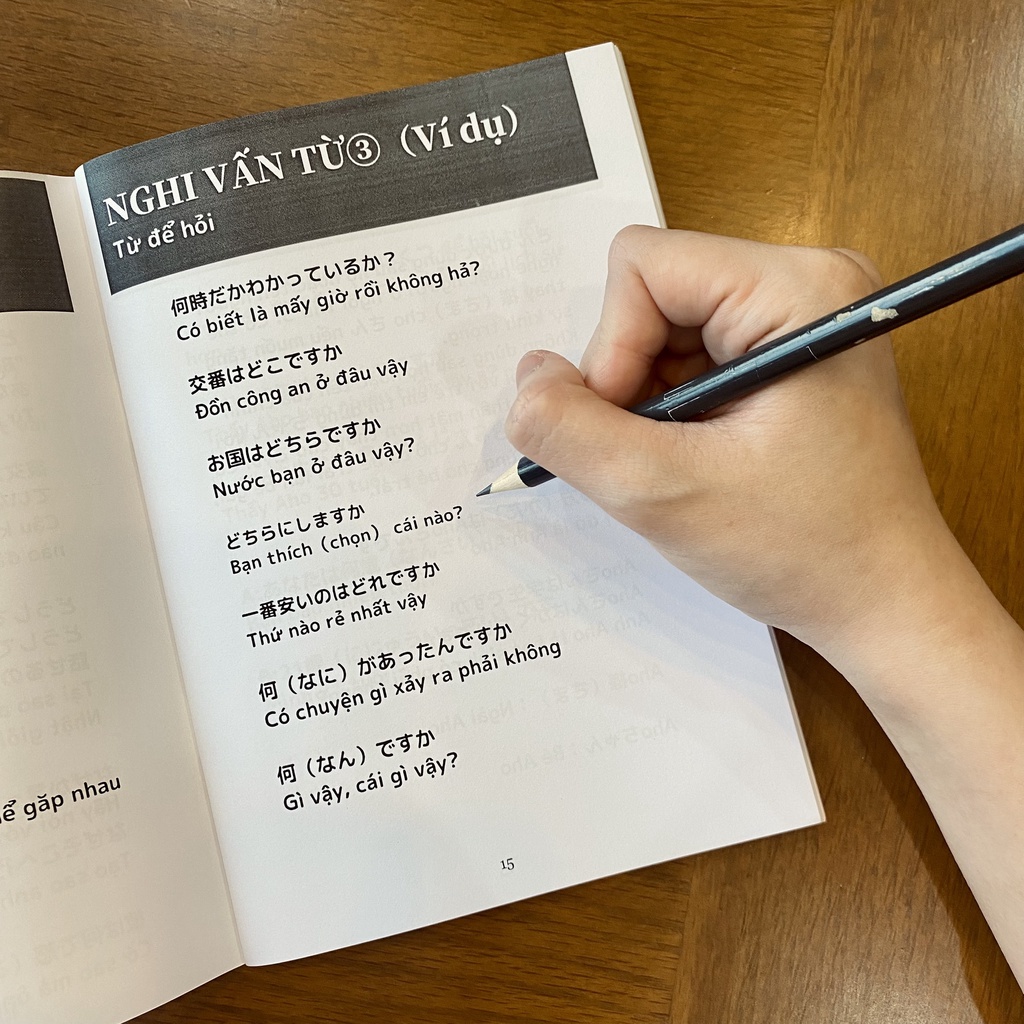 NGHI VẤN TỪ③（Ví dụ）
Từ để hỏi
何時だかわかっているか？
Có biết là mấy giờ rồi không hả?
交番はどこですか
Đồn công an ở đâu vậy
お国はどちらですか
Nước bạn ở đâu vậy?
どちらにしますか
Bạn thích（chọn） cái nào?
一番安いのはどれですか
Thứ nào rẻ nhất vậy
何（なに）があったんですか
Có chuyện gì xảy ra phải không
何（なん）ですか
Gì vậy, cái gì vậy?
15
gặp nhau